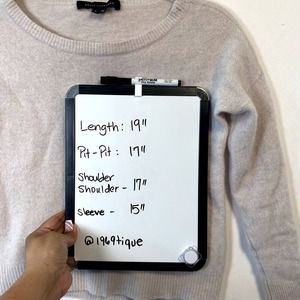 Length: 19"
Pit-Pit: 17"
Shoulder
Shoulder - 17"
Sleeve - 15"
@1969tique